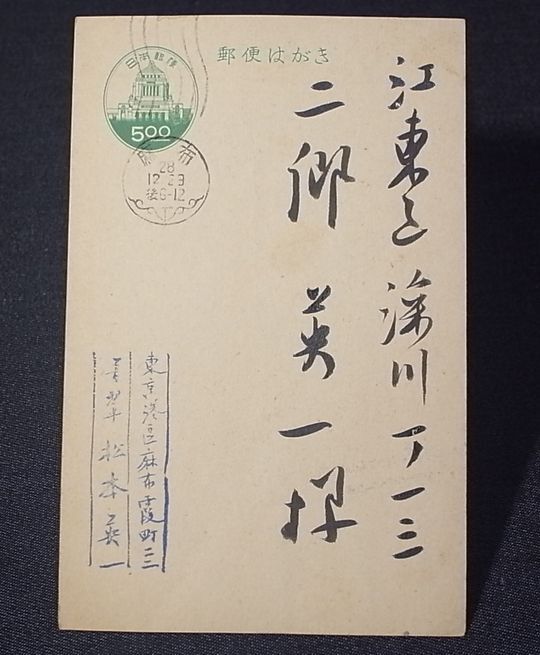 郵便はがき
日本郵便
5.00
麻布
28
12 23
後6-12
江東区深川 一ノ一三
二郷英一様
東京港区麻布霞町二二
松本英一